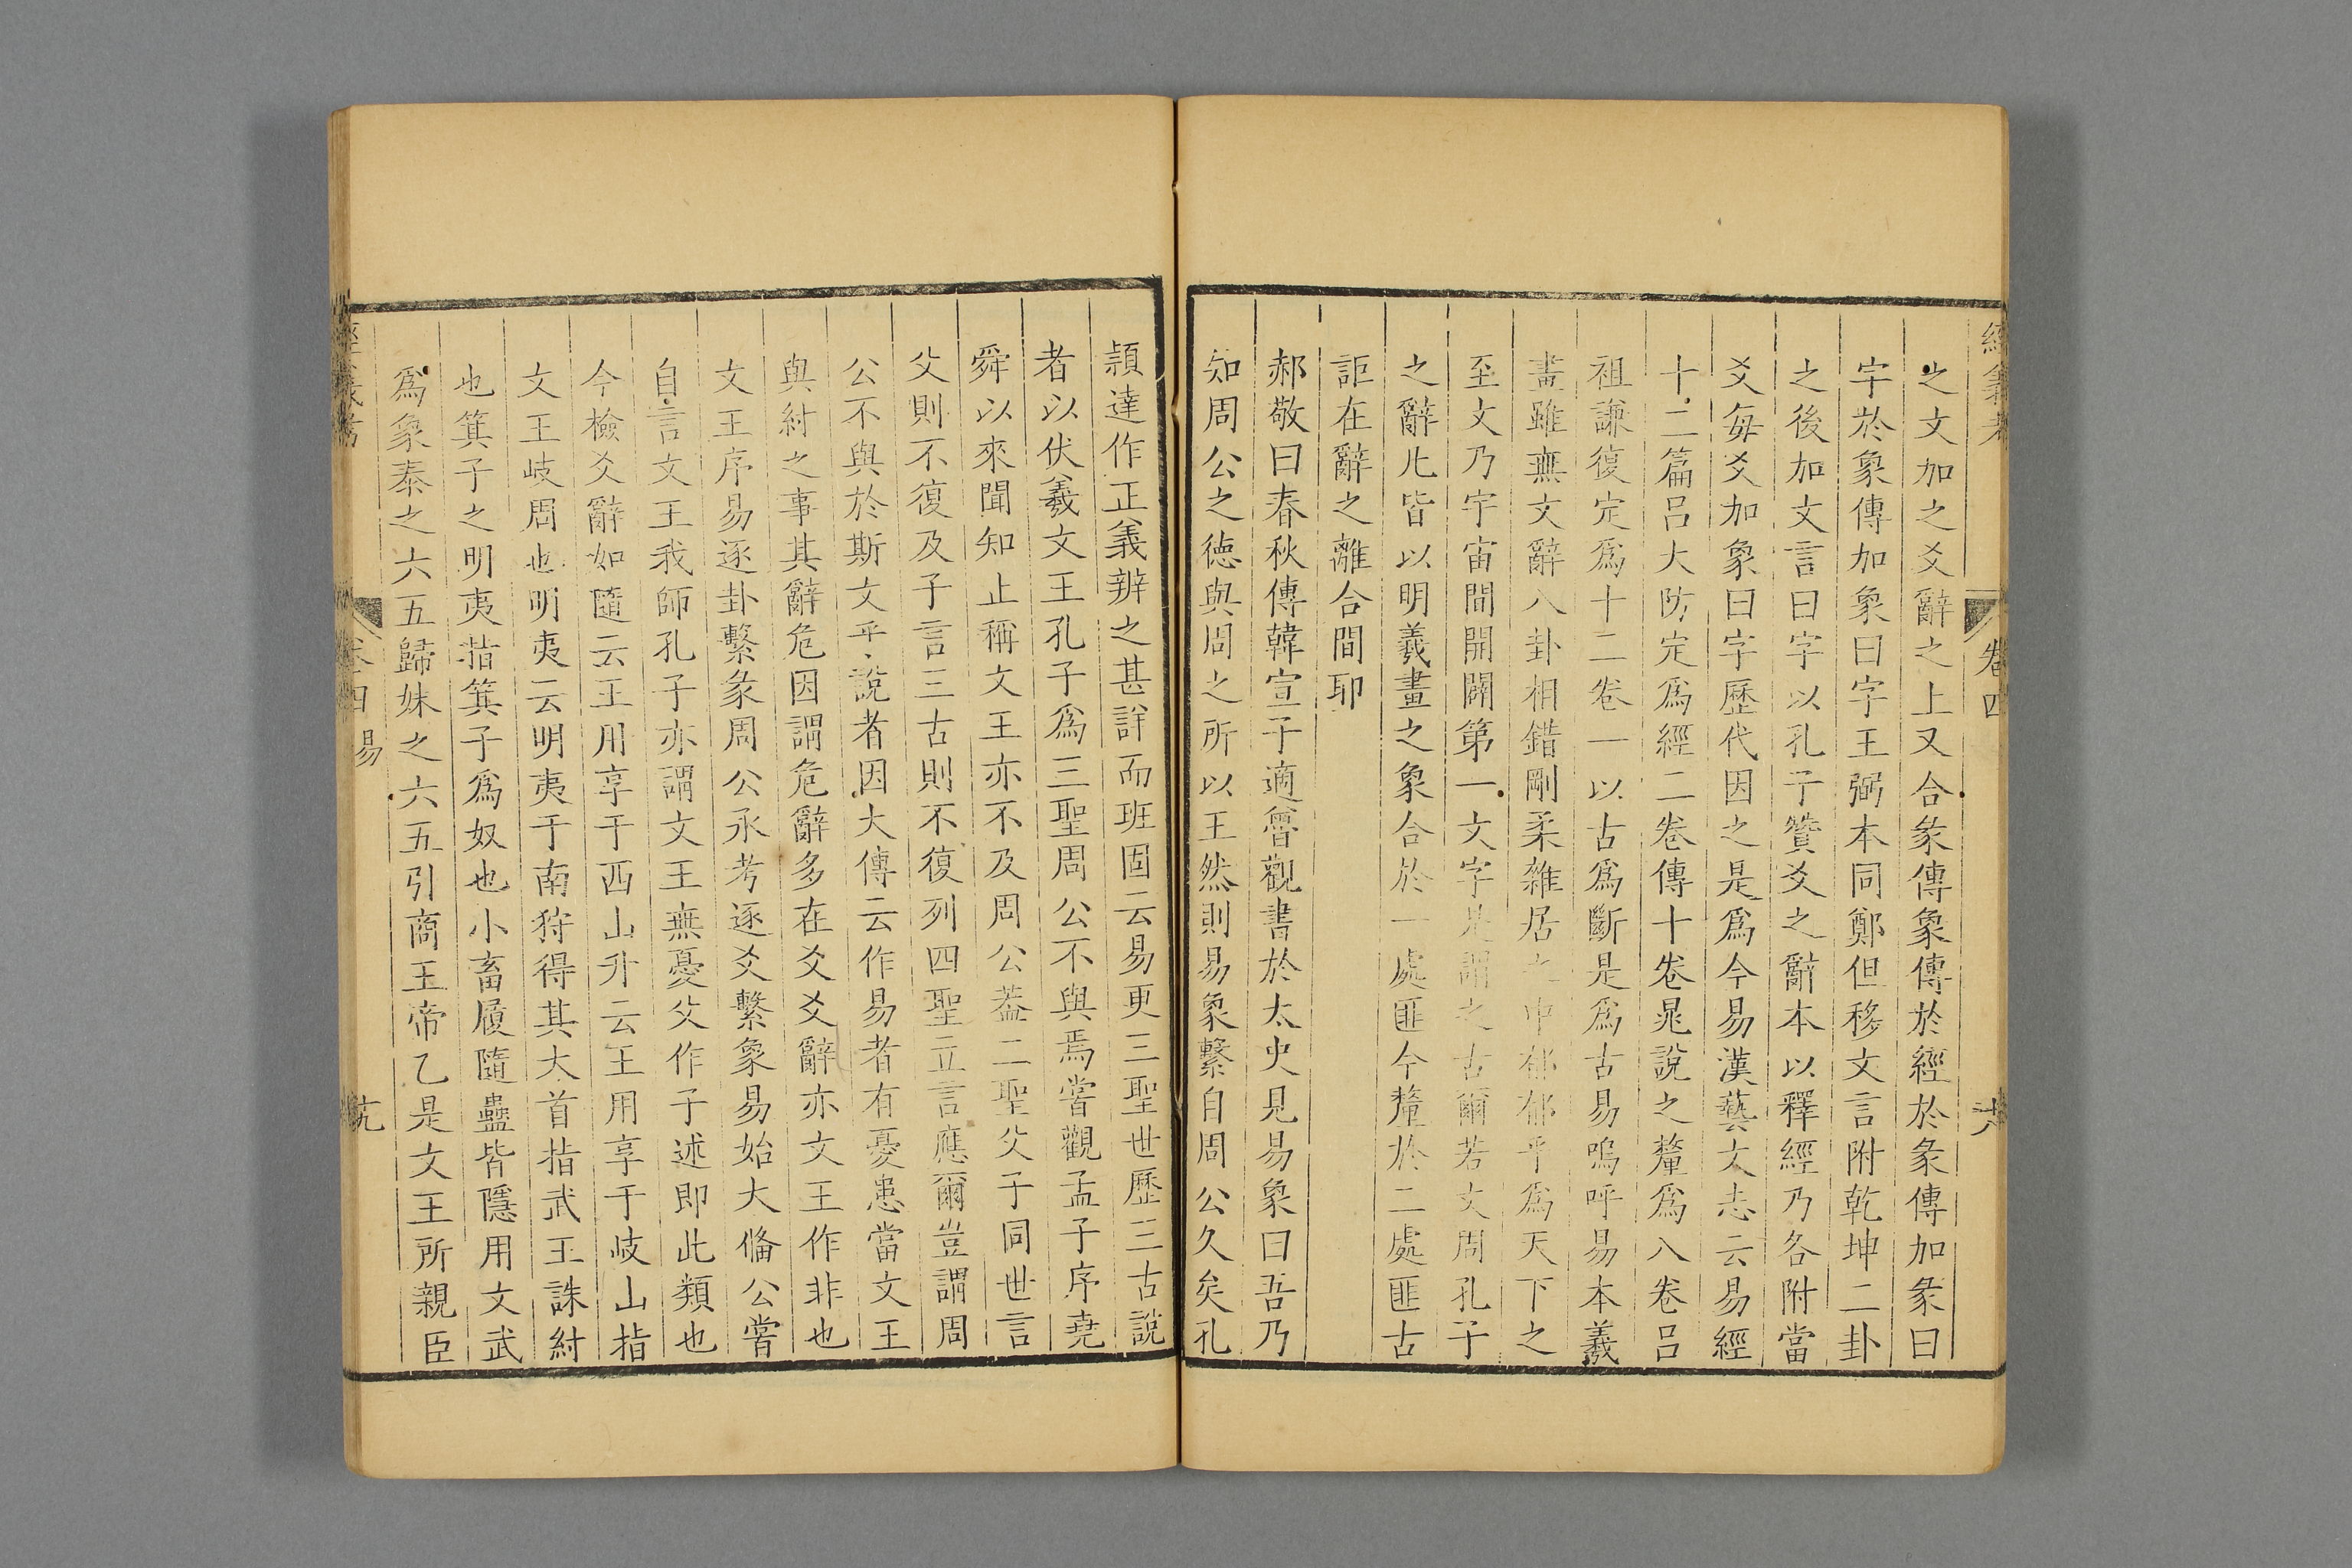 經義考
卷四
十八
之文加之爻辭之上又合彖傳象傳於經於彖傳加彖曰
字於象傳加象曰字王弼本同鄭但移文言附乾坤二卦
之後加文言曰字以孔子贊爻之辭本以釋經乃各附當
爻每爻加象曰字歷代因之是爲今易漢藝文志云易經
十二篇呂大防定爲經二卷傳十卷晁說之釐爲八卷呂
祖謙復定爲十二卷一以古爲斷是爲古易嗚呼易本義
畫雖無文辭八卦相錯剛柔雜居之中郁郁乎爲天下之
至文乃宇宙間開闢第一文字是謂之古爾若文周孔子
之辭凡皆以明羲畫之象合於一處匪今釐於二處匪古
詎在辭之離合間耶
郝敬曰春秋傳韓宣子適魯觀書於太史見易象曰吾乃
知周公之德與周之所以王然則易象繫自周公久矣孔
穎達作正義辨之甚詳而班固云易更三聖世歷三古說
者以伏羲文王孔子爲三聖周公不與焉嘗觀孟子序堯
舜以來聞知止稱文王亦不及周公蓋二聖父子同世言
父則不復及子言三古則不復列四聖立言應爾豈謂周
公不與於斯文乎說者因大傳云作易者有憂患當文王
與紂之事其辭危因謂危辭多在爻爻辭亦文王作非也
文王序易逐卦繫彖周公承考逐爻繫象易始大備公嘗
自言文王我師孔子亦謂文王無憂父作子述即此類也
今檢爻辭如隨云王用享于西山升云王用享于岐山指
文王岐周也明夷云明夷于南狩得其大首指武王誅紂
也箕子之明夷指箕子爲奴也小畜履隨蠱皆隱用文武
爲象泰之六五歸妹之六五引商王帝乙是文王所親臣
經義考
卷四 易
十九